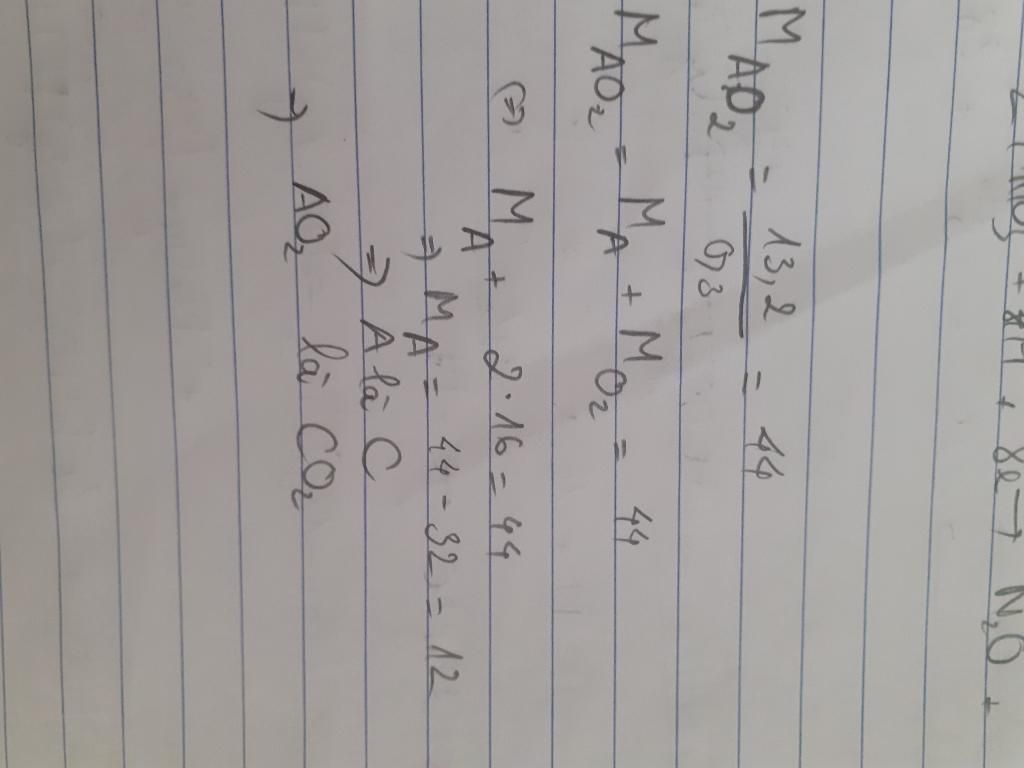 + 8e → N₂O +
M_AO₂ = 13,2 / 0,3 = 44
M_AO₂ = M_A + M_O₂ = 44
(=) M_A + 2.16 = 44
=) M_A = 44 - 32 = 12
=) A là C
=) AO₂ là CO₂